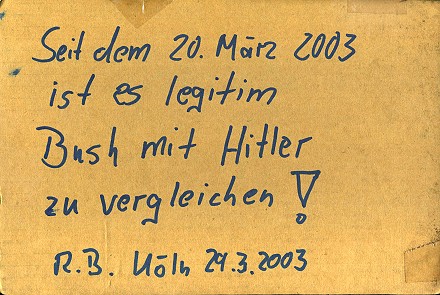 Seit dem 20. März 2003
ist es legitim
Bush mit Hitler
zu vergleichen!
R.B. Köln 29.3.2003